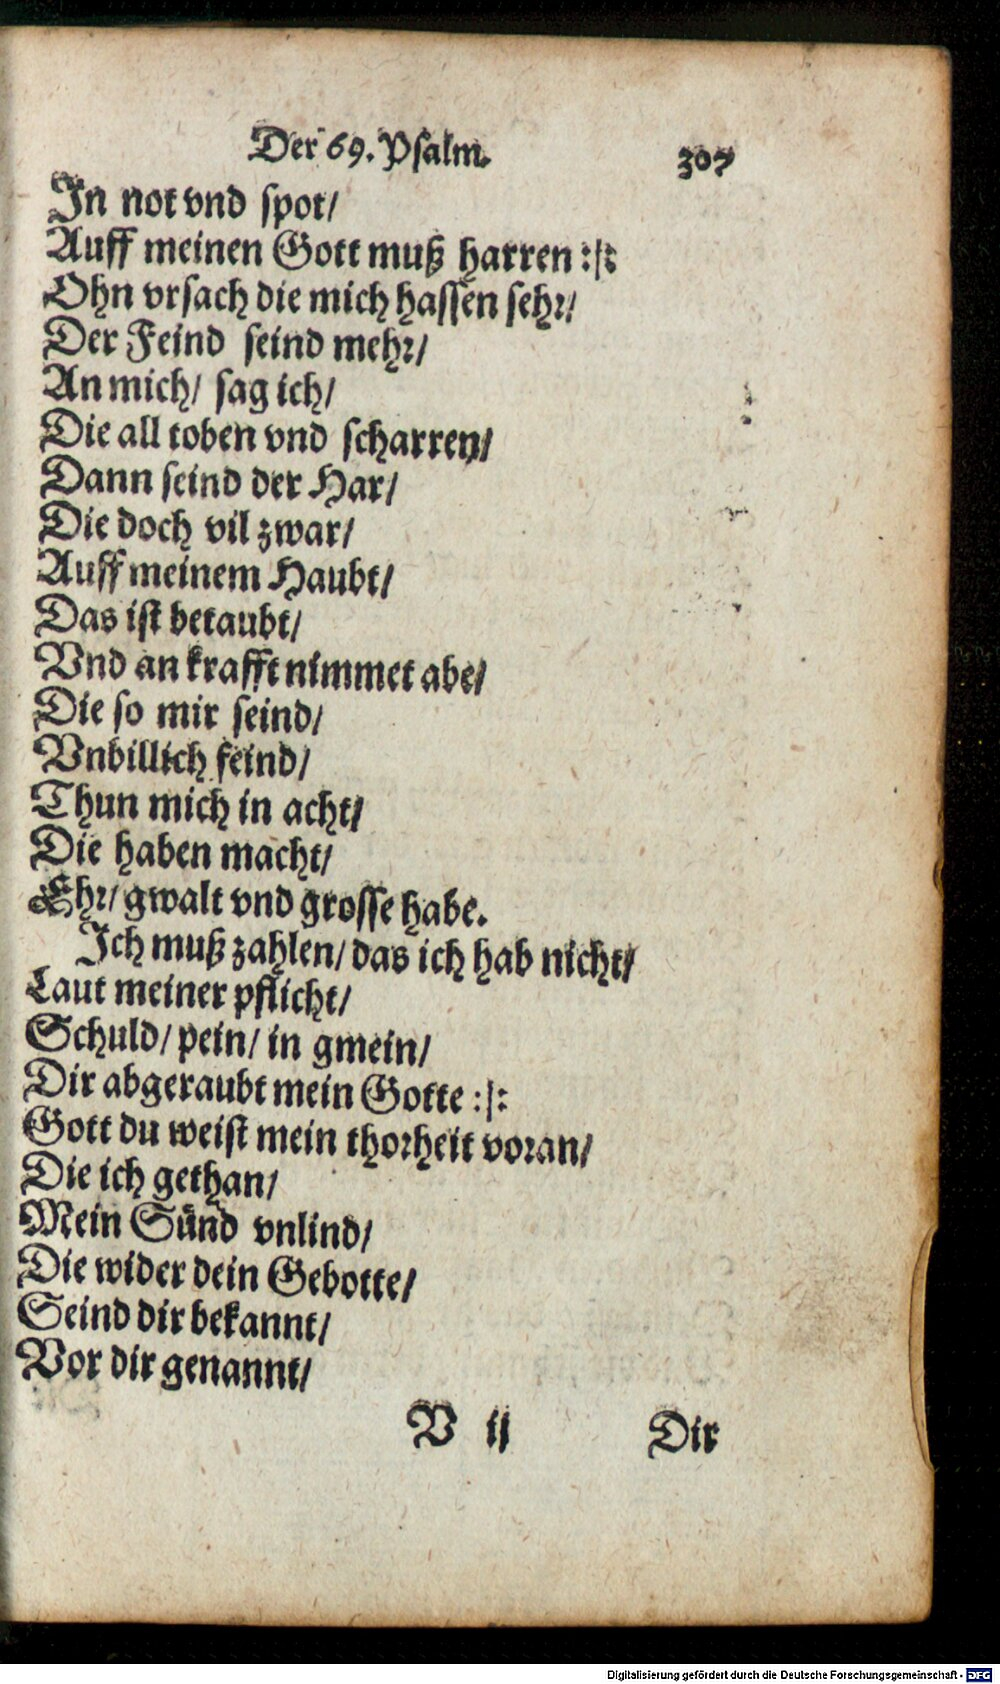 Der 69. Psalm. 307
In not vnd spot/
Auff meinen Gott muß harren :|:
Ohn vrsach die mich hassen sehr/
Der Feind seind mehr/
An mich/ sag ich/
Die all toben vnd scharren/
Dann seind der Har/
Die doch vil zwar/
Auff meinem Haubt/
Das ist betaubt/
Vnd an krafft nimmet abe/
Die so mir seind/
Vnbillich feind/
Thun mich in acht/
Die haben macht/
Ehr/ gwalt vnd grosse habe.
Ich muß zahlen/ das ich hab nicht/
Laut meiner pflicht/
Schuld/ pein/ in gmein/
Dir abgeraubt mein Gotte :|:
Gott du weist mein thorheit voran/
Die ich gethan/
Mein Sünd vnlind/
Die wider dein Gebotte/
Seind dir bekannt/
Vor dir genannt/
V ij Dir
Digitalisierung gefördert durch die Deutsche Forschungsgemeinschaft - DFG